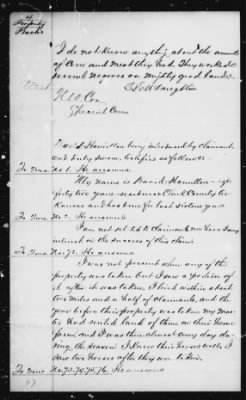 of
Property
Books
I do not know anything about the amount
of Corn and Meat they had. They worked
several negroes on mighty good land.
H. W. Cox
Special Com
Hamilton being introduced by claimant
and duly sworn, testifies as follows.
To Ques. No 1. He answered
My name is Hamilton—age
forty two years—residence Clark County Ar-
Kansas and has been for last sixteen years
To Ques. No 2. He answered
I am not related to claimant nor have I any
interest in the success of this claim
To Ques. No. 72. He answered
I was not present when any of the
property was taken, but I saw a portion of
it after it was taken. I lived within about
two miles and a half of claimants, and the
year before this property was taken my mas-
ter had rented land of them on their home
farm, and I was there almost every day du-
ring the season. I knew their horses well. I
saw two horses after they were taken.
To Ques. No. 73, 74, 75, 76. He answered